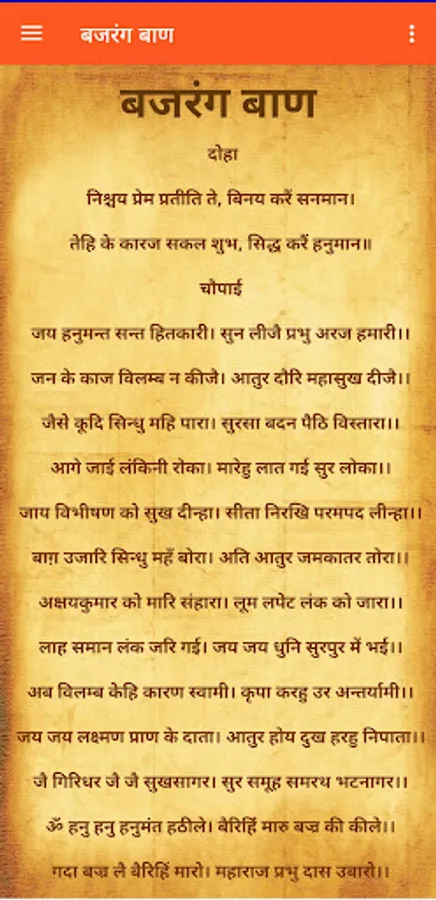 बजरंग बाण
बजरंग बाण
दोहा
निश्चय प्रेम प्रतीति ते, बिनय करैं सनमान।
तेहि के कारज सकल शुभ, सिद्ध करैं हनुमान॥
चौपाई
जय हनुमन्त सन्त हितकारी। सुन लीजै प्रभु अरज हमारी।।
जन के काज विलम्ब न कीजै। आतुर दौरि महासुख दीजै।।
जैसे कूदि सिन्धु महि पारा। सुरसा बदन पैठि विस्तारा।।
आगे जाई लंकिनी रोका। मारेहु लात गई सुर लोका।।
जाय विभीषण को सुख दीन्हा। सीता निरखि परमपद लीन्हा।।
बाग़ उजारि सिन्धु महँ बोरा। अति आतुर जमकातर तोरा।।
अक्षयकुमार को मारि संहारा। लूम लपेट लंक को जारा।।
लाह समान लंक जरि गई। जय जय धुनि सुरपुर में भई।।
अब विलम्ब केहि कारण स्वामी। कृपा करहु उर अन्तर्यामी।।
जय जय लक्ष्मण प्राण के दाता। आतुर होय दुख हरहु निपाता।।
जै गिरिधर जै जै सुखसागर। सुर समूह समरथ भटनागर।।
ॐ हनु हनु हनुमंत हठीले। बैरिहिं मारु बज्र की कीले।।
गदा बज्र लै बैरिहिं मारो। महाराज प्रभु दास उबारो।।